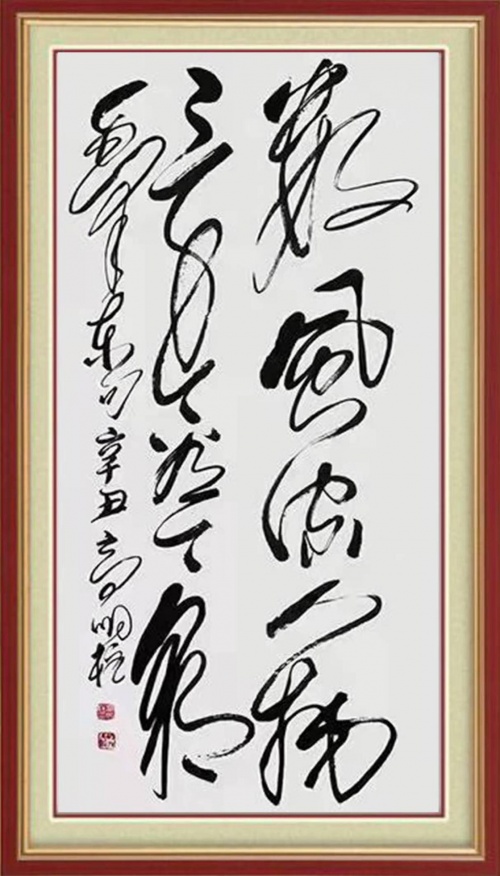 数風流人物
还看今朝
毛泽东句 辛丑 高明